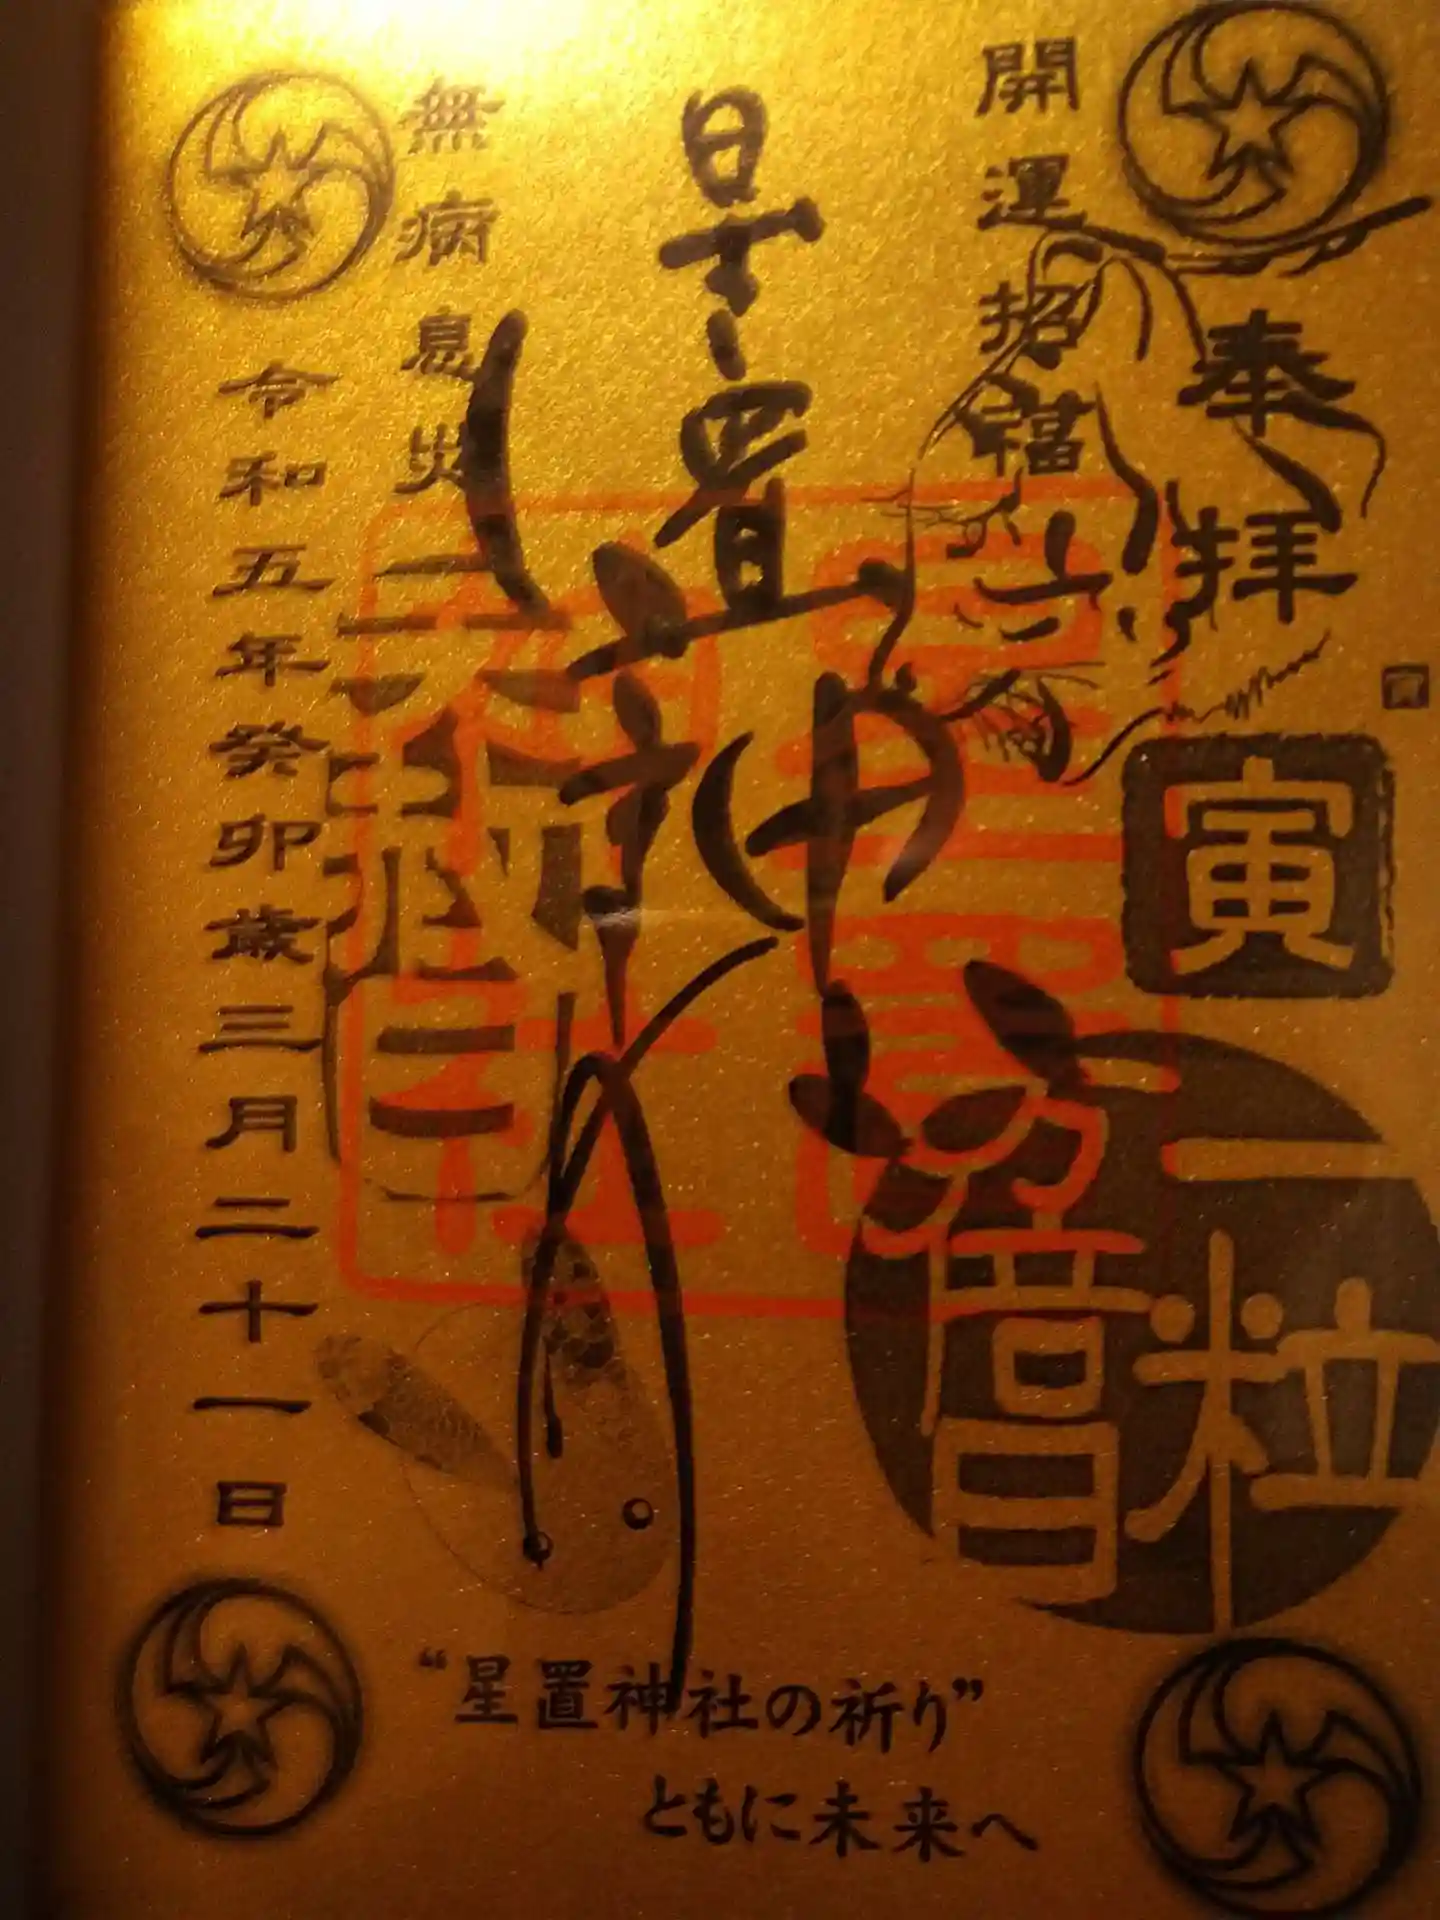 奉拝
寅
一粒
万倍日
開運招福
星置神社
星置
神社
無病息災
令和五年癸卯歳三月二十一日
“星置神社の祈り”
ともに未来へ